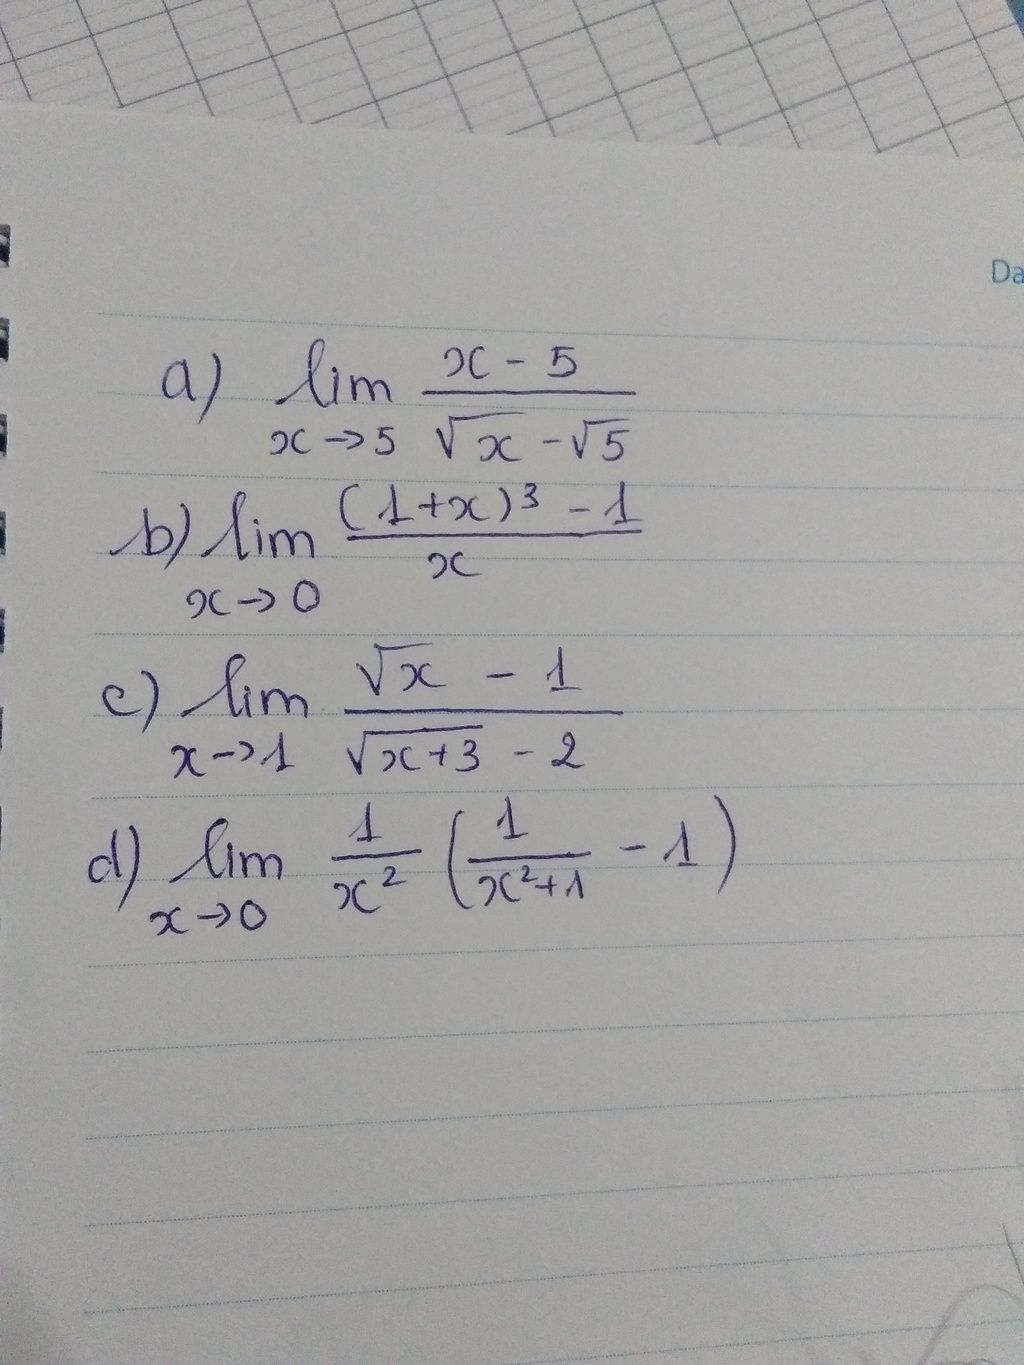 Da
a) lim x→5 (x - 5)/(√x - √5)
b) lim x→0 ((1+x)³ - 1)/x
c) lim x→1 (√x - 1)/(√(x+3) - 2)
d) lim x→0 1/x² (1/(x²+1) - 1)